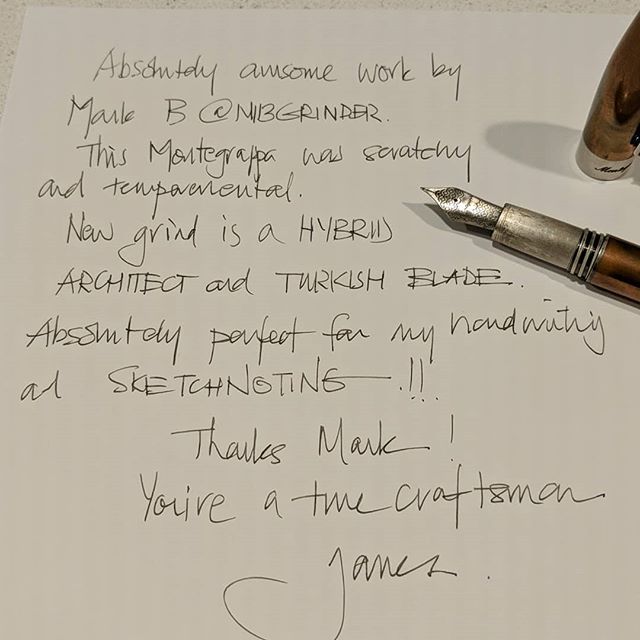 Absolutely awsome work by
Mark B @NIBGRINDER.
This Montegrappa was scratchy
and temparemental.
New grind is a HYBRID
ARCHITECT and TURKISH BLADE.
Absolutely perfect for my handwriting
and SKETCHNOTING.!!
Thanks Mark!
You're a true craftsman
James.